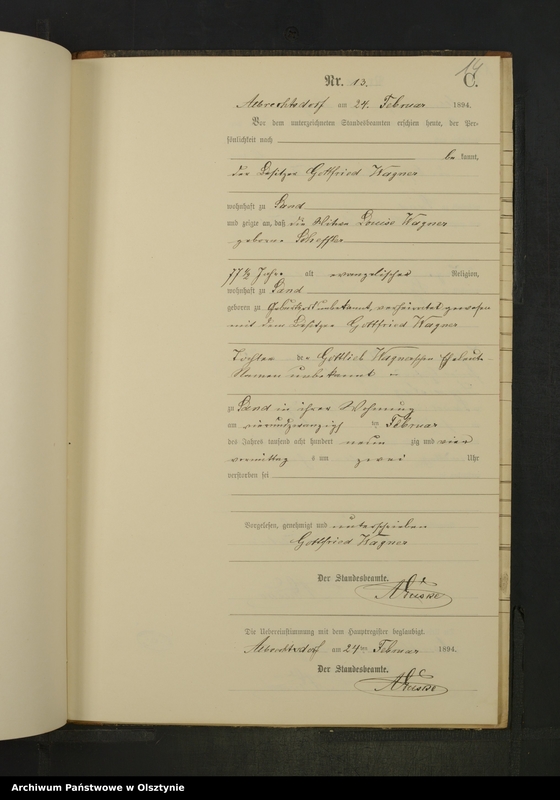 14
Nr. 13. C.
Albrechtsdorf am 24. Februar 1894.
Vor dem unterzeichneten Standesbeamten erschien heute, der Per-
sönlichkeit nach
be kannt,
der Besitzer Gottfried Wagner
wohnhaft zu Sand
und zeigte an, daß die Witwe Louise Wagner
geborne Schoffler
77 1/2 Jahre alt evangelischer Religion,
wohnhaft zu Sand
geboren zu Geburtsort unbekannt, verheiratet gewesen
mit dem Besitzer Gottfried Wagner
Tochter der Gottlieb Wagnerschen Eheleute
Namen unbekannt
zu Sand in ihrer Wohnung
am vierundzwanzigst ten Februar
des Jahres tausend acht hundert neun zig und vier
vormittag s um zwei Uhr
verstorben sei
Vorgelesen, genehmigt und unterschrieben
Gottfried Wagner
Der Standesbeamte.
Die Uebereinstimmung mit dem Hauptregister beglaubigt.
Albrechtsdorf am 24ten Februar 1894.
Der Standesbeamte.
Archiwum Państwowe w Olsztynie